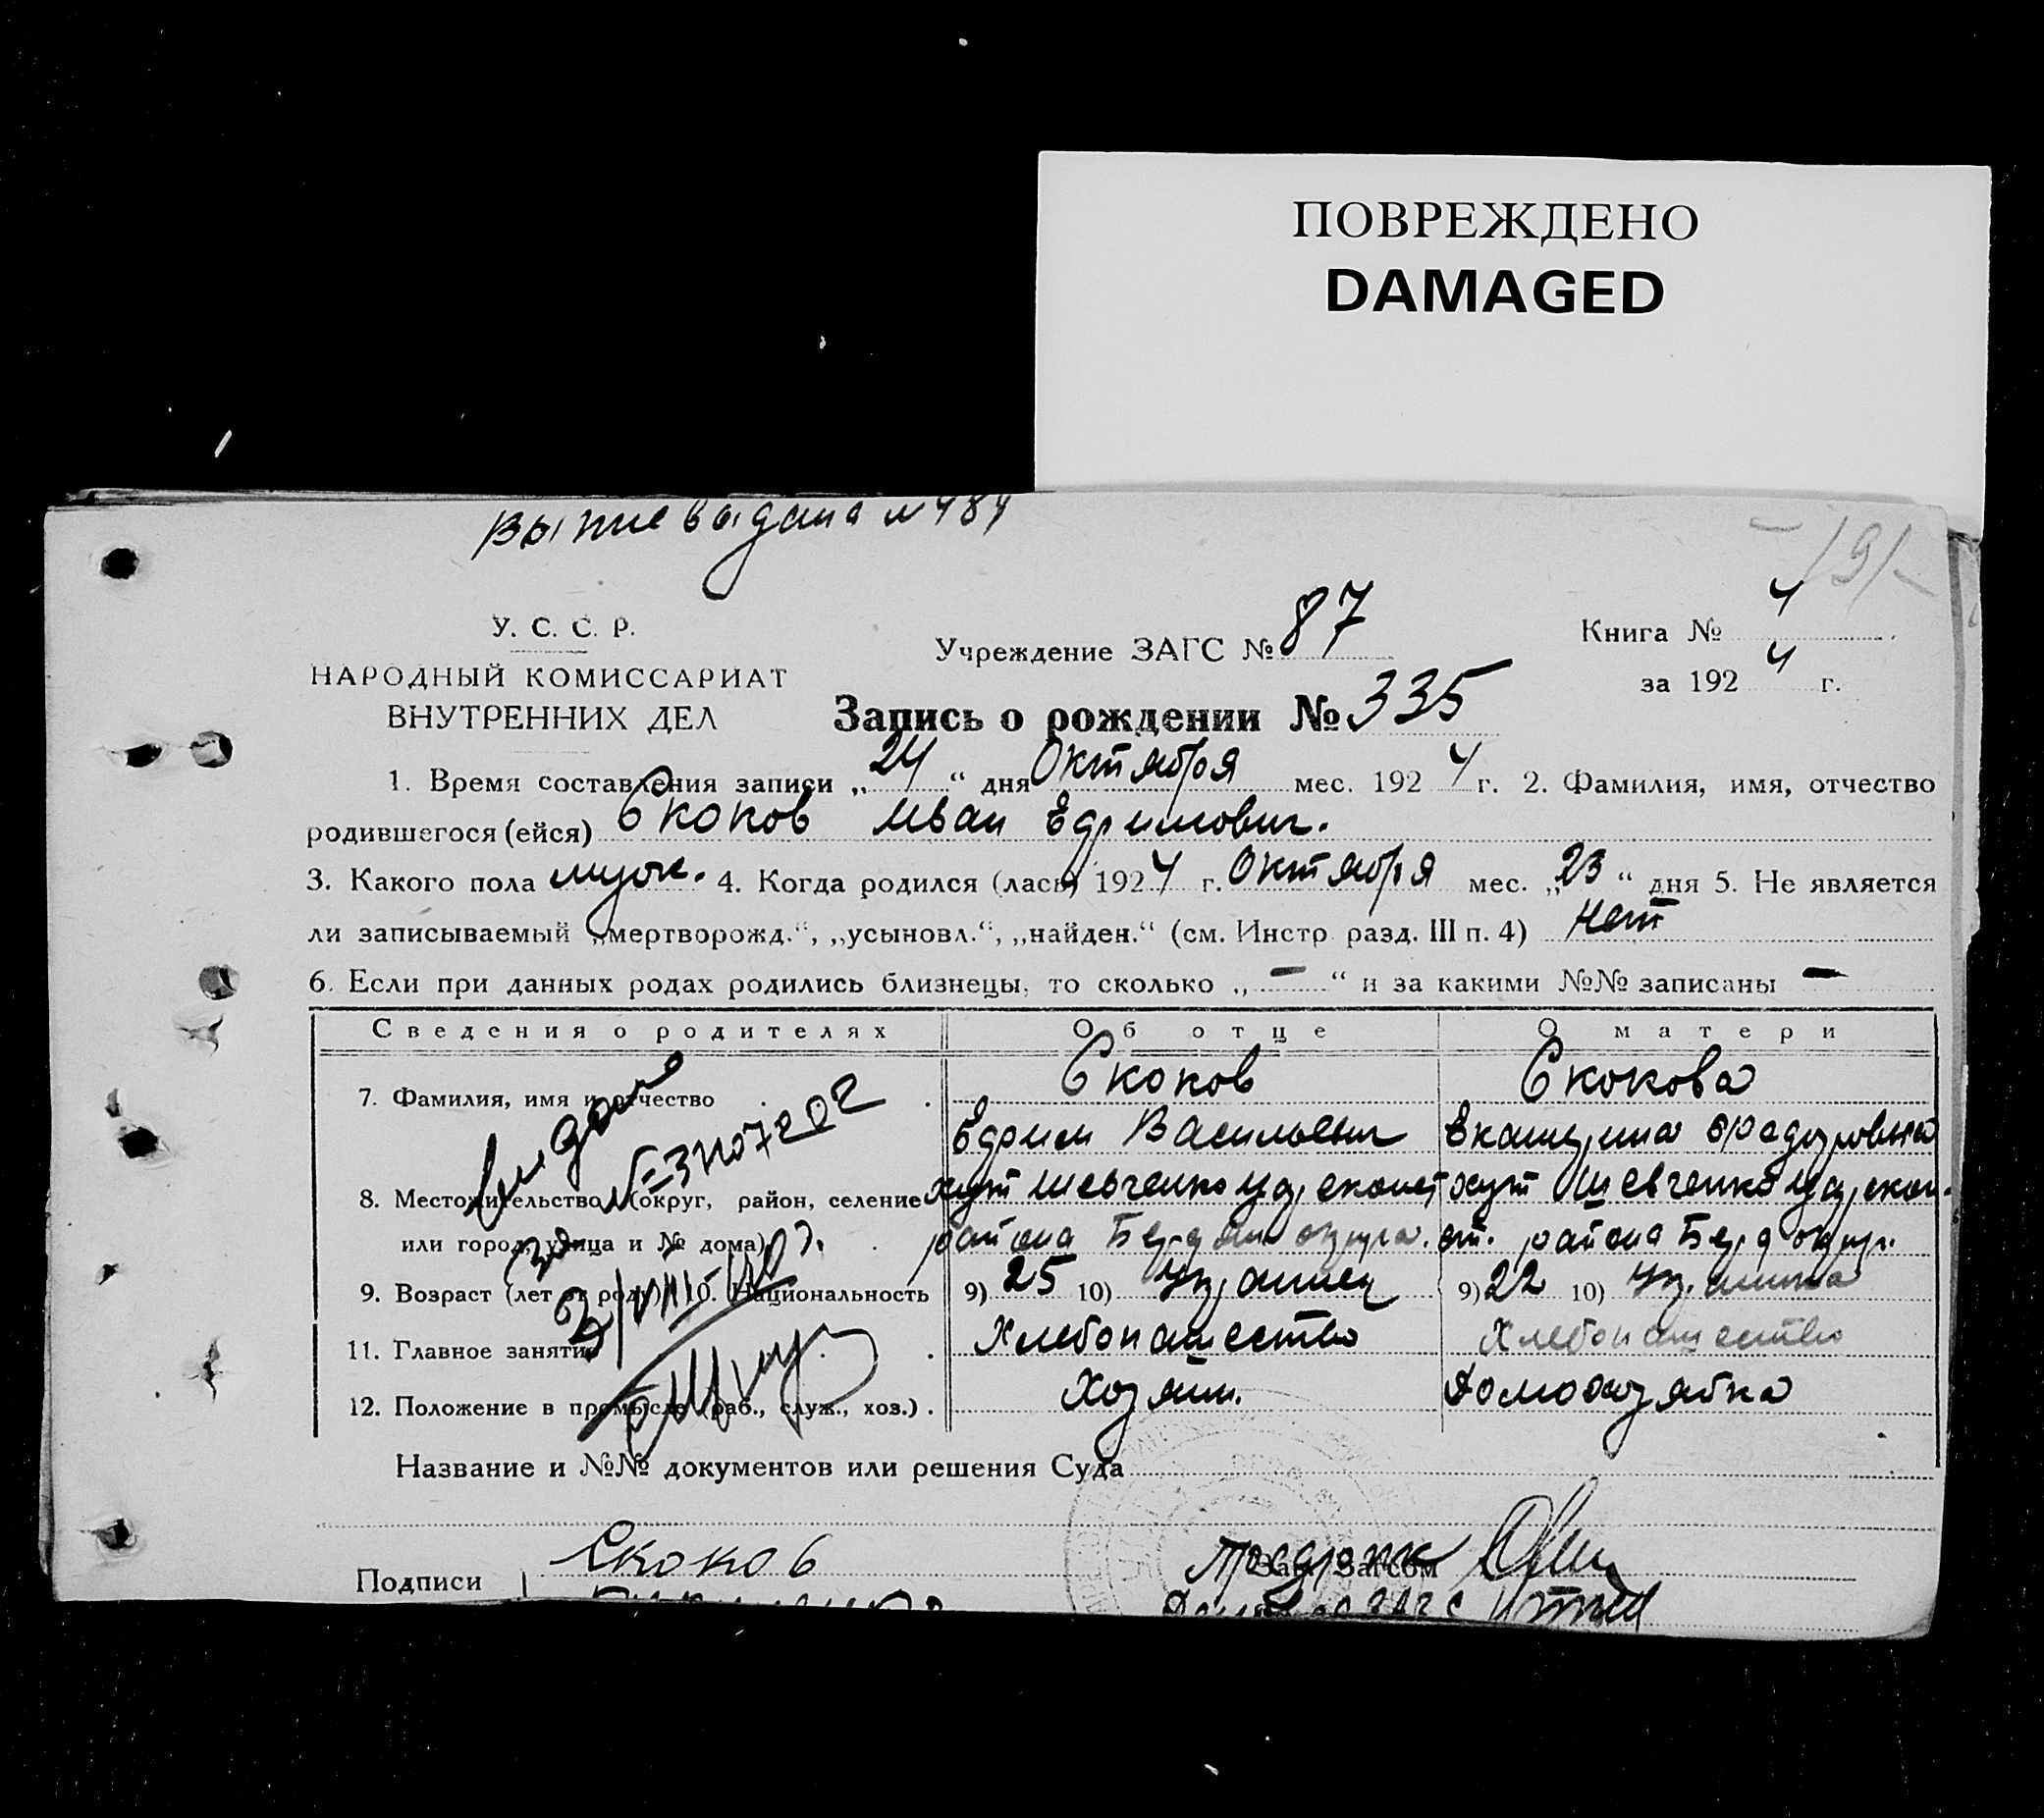 ПОВРЕЖДЕНО
DAMAGED
выдана № 484
У. С. С. Р.
НАРОДНЫЙ КОМИССАРИАТ
ВНУТРЕННИХ ДЕЛ
Учреждение ЗАГС № 87
Книга № 4
за 192 4 г.
Запись о рождении № 335
1. Время составления записи „24“ дня Октября мес. 192 4 г. 2. Фамилия, имя, отчество
родившегося (ейся) Скоков Иван Ефимович.
3. Какого пола муж. 4. Когда родился (лась) 192 4 г. Октября мес. „23“ дня 5. Не является
ли записываемый „мертворожд.“, „усыновл.“, „найден.“ (см. Инстр. разд. III п. 4) нет
6. Если при данных родах родились близнецы, то сколько „—“ и за какими №№ записаны —
Сведения о родителях Об отце О матери
7. Фамилия, имя и отчество Скоков Скокова
Ефим Васильевич Екатерина
8. Местожительство (округ, район, селение хут Шевченко хут Шевченко
или город, улица и № дома) района Берд округа. района Берд окр.
9. Возраст (лет от роду) 10. Национальность 9) 25 10) Украинец 9) 22 10) Украинка
11. Главное занятие Хлебопашество Хлебопашество
12. Положение в промысле (раб., служ., хоз.) Хозяин. Домохозяйка
Название и №№ документов или решения Суда
Подписи Скоков Зав. Загсом